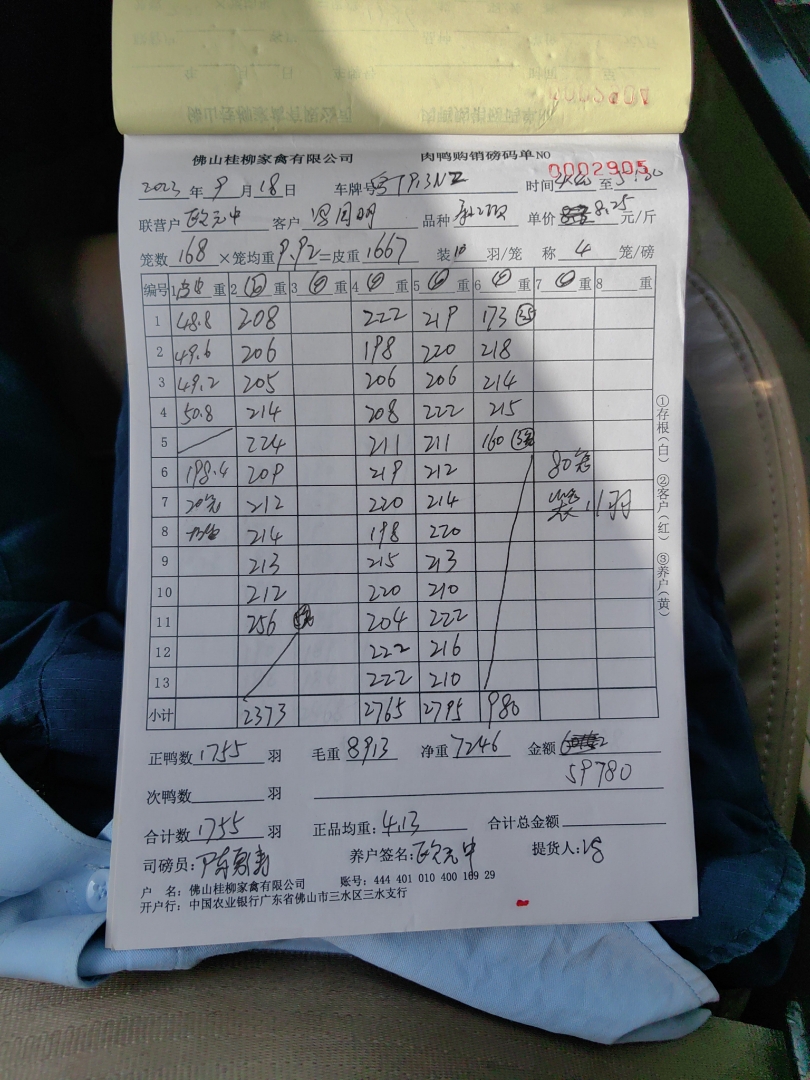 佛山桂柳家禽有限公司 肉鸭购销磅码单NO 0002905
2023年9月18日 车牌号 时间 至
联营户 欧元中 客户 冯国明 品种 单价 8.25 元/斤
笼数 168 ×笼均重 9.92 =皮重 1667 装 10 羽/笼 称 4 笼/磅
编号 1 重 2 重 3 重 4 重 5 重 6 重 7 重 8 重
1 48.8 208 222 219 173
2 49.6 206 198 220 218
3 49.2 205 206 206 214
4 50.8 214 208 222 215
5 224 211 211 160
6 198.4 209 219 212 80笼
7 20笼 212 220 214 装11羽
8 214 198 220
9 213 215 213
10 212 220 210
11 256 204 222
12 222 216
13 222 210
小计 2373 2765 2795 980
正鸭数 1755 羽 毛重 8913 净重 7246 金额
59780
次鸭数 羽
合计数 1755 羽 正品均重: 4.13 合计总金额
司磅员: 养户签名: 欧元中 提货人:
户 名: 佛山桂柳家禽有限公司 账号: 444 401 010 400 169 29
开户行: 中国农业银行广东省佛山市三水区三水支行
①存根(白) ②客户(红) ③养户(黄)